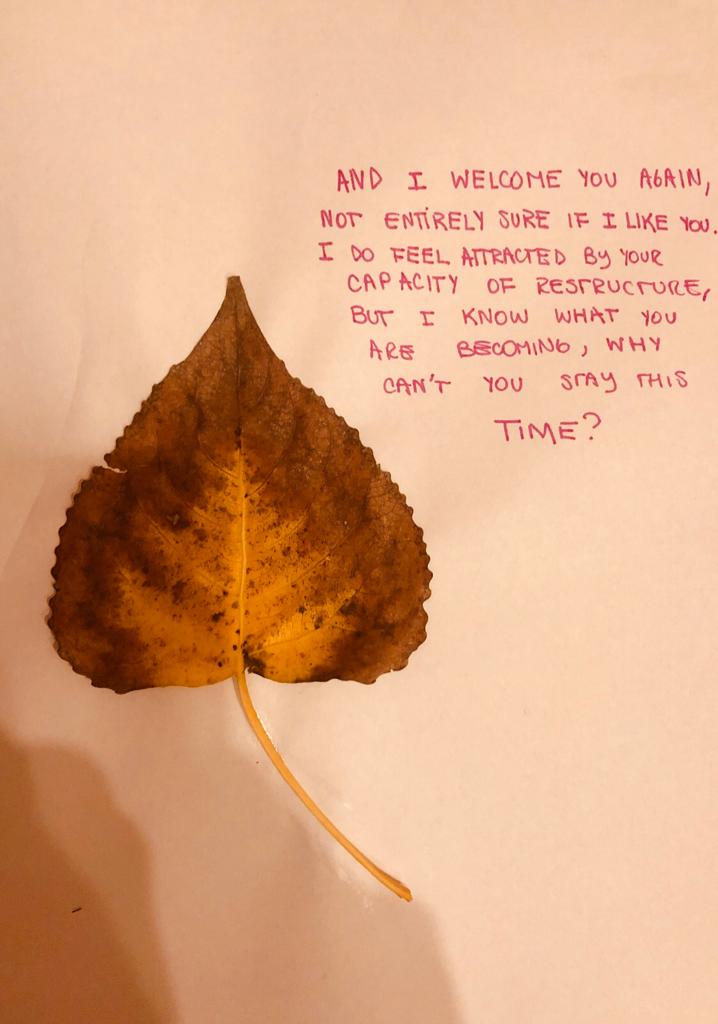 AND I WELCOME YOU AGAIN,
NOT ENTIRELY SURE IF I LIKE YOU.
I DO FEEL ATTRACTED BY YOUR
CAPACITY OF RESTRUCTURE,
BUT I KNOW WHAT YOU
ARE BECOMING, WHY
CAN'T YOU STAY THIS
TIME?